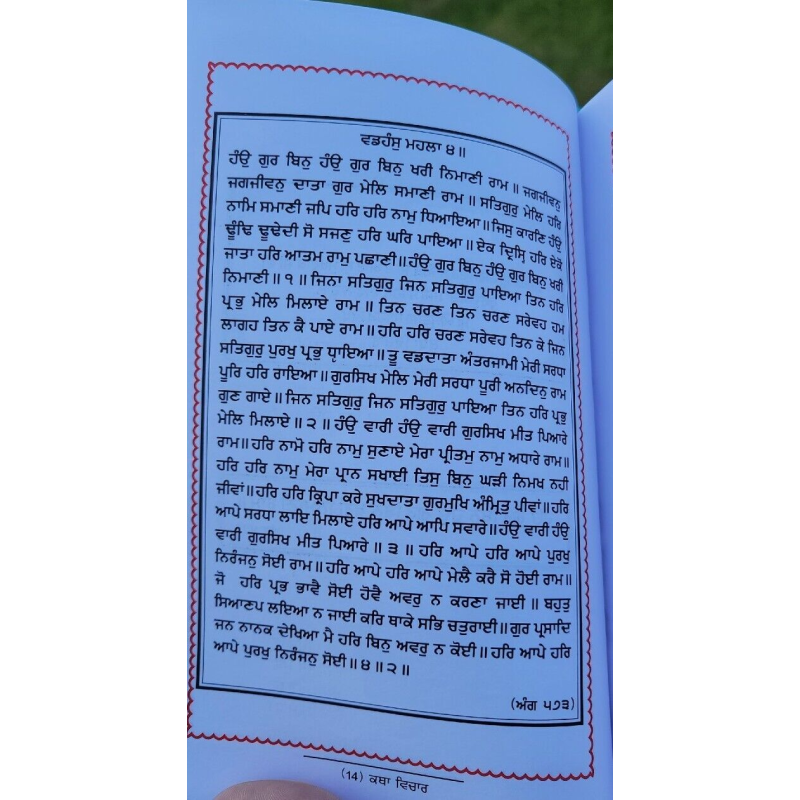 ਵਡਹੰਸੁ ਮਹਲਾ ੪॥
ਹੰਉ ਗੁਰ ਬਿਨੁ ਹੰਉ ਗੁਰ ਬਿਨੁ ਖਰੀ ਨਿਮਾਣੀ ਰਾਮ॥ ਜਗਜੀਵਨੁ
ਜਗਜੀਵਨੁ ਦਾਤਾ ਗੁਰ ਮੇਲਿ ਸਮਾਣੀ ਰਾਮ॥ ਸਤਿਗੁਰੁ ਮੇਲਿ ਹਰਿ
ਨਾਮਿ ਸਮਾਣੀ ਜਪਿ ਹਰਿ ਹਰਿ ਨਾਮੁ ਧਿਆਇਆ॥ ਜਿਸੁ ਕਾਰਣਿ ਹੰਉ
ਢੂੰਢਿ ਢੂਢੇਦੀ ਸੋ ਸਜਣੁ ਹਰਿ ਘਰਿ ਪਾਇਆ॥ ਏਕ ਦ੍ਰਿਸ੍ਟਿ ਹਰਿ ਏਕੋ
ਜਾਤਾ ਹਰਿ ਆਤਮ ਰਾਮੁ ਪਛਾਣੀ॥ ਹੰਉ ਗੁਰ ਬਿਨੁ ਹੰਉ ਗੁਰ ਬਿਨੁ ਖਰੀ
ਨਿਮਾਣੀ॥ ੧॥ ਜਿਨਾ ਸਤਿਗੁਰੁ ਜਿਨ ਸਤਿਗੁਰੁ ਪਾਇਆ ਤਿਨ ਹਰਿ
ਪ੍ਰਭੁ ਮੇਲਿ ਮਿਲਾਏ ਰਾਮ॥ ਤਿਨ ਚਰਣ ਤਿਨ ਚਰਣ ਸਰੇਵਹ ਹਮ
ਲਾਗਹ ਤਿਨ ਕੈ ਪਾਏ ਰਾਮ॥ ਹਰਿ ਹਰਿ ਚਰਣ ਸਰੇਵਹ ਤਿਨ ਕੇ ਜਿਨ
ਸਤਿਗੁਰੁ ਪੁਰਖੁ ਪ੍ਰਭੁ ਧੵਾਇਆ॥ ਤੂ ਵਡਦਾਤਾ ਅੰਤਰਜਾਮੀ ਮੇਰੀ ਸਰਧਾ
ਪੂਰਿ ਹਰਿ ਰਾਇਆ॥ ਗੁਰਸਿਖ ਮੇਲਿ ਮੇਰੀ ਸਰਧਾ ਪੂਰੀ ਅਨਦਿਨੁ ਰਾਮ
ਗੁਣ ਗਾਏ॥ ਜਿਨ ਸਤਿਗੁਰੁ ਜਿਨ ਸਤਿਗੁਰੁ ਪਾਇਆ ਤਿਨ ਹਰਿ ਪ੍ਰਭੁ
ਮੇਲਿ ਮਿਲਾਏ॥ ੨॥ ਹੰਉ ਵਾਰੀ ਹੰਉ ਵਾਰੀ ਗੁਰਸਿਖ ਮੀਤ ਪਿਆਰੇ
ਰਾਮ॥ ਹਰਿ ਨਾਮੋ ਹਰਿ ਨਾਮੁ ਸੁਣਾਏ ਮੇਰਾ ਪ੍ਰੀਤਮੁ ਨਾਮੁ ਅਧਾਰੇ ਰਾਮ॥
ਹਰਿ ਹਰਿ ਨਾਮੁ ਮੇਰਾ ਪ੍ਰਾਨ ਸਖਾਈ ਤਿਸੁ ਬਿਨੁ ਘੜੀ ਨਿਮਖ ਨਹੀ
ਜੀਵਾਂ॥ ਹਰਿ ਹਰਿ ਕ੍ਰਿਪਾ ਕਰੇ ਸੁਖਦਾਤਾ ਗੁਰਮੁਖਿ ਅੰਮ੍ਰਿਤੁ ਪੀਵਾਂ॥ ਹਰਿ
ਆਪੇ ਸਰਧਾ ਲਾਇ ਮਿਲਾਏ ਹਰਿ ਆਪੇ ਆਪਿ ਸਵਾਰੇ॥ ਹੰਉ ਵਾਰੀ ਹੰਉ
ਵਾਰੀ ਗੁਰਸਿਖ ਮੀਤ ਪਿਆਰੇ॥ ੩॥ ਹਰਿ ਆਪੇ ਹਰਿ ਆਪੇ ਪੁਰਖੁ
ਨਿਰੰਜਨੁ ਸੋਈ ਰਾਮ॥ ਹਰਿ ਆਪੇ ਹਰਿ ਆਪੇ ਮੇਲੈ ਕਰੈ ਸੋ ਹੋਈ ਰਾਮ॥
ਜੋ ਹਰਿ ਪ੍ਰਭ ਭਾਵੈ ਸੋਈ ਹੋਵੈ ਅਵਰੁ ਨ ਕਰਣਾ ਜਾਈ॥ ਬਹੁਤੁ
ਸਿਆਣਪ ਲਇਆ ਨ ਜਾਈ ਕਰਿ ਥਾਕੇ ਸਭਿ ਚਤੁਰਾਈ॥ ਗੁਰ ਪ੍ਰਸਾਦਿ
ਜਨ ਨਾਨਕ ਦੇਖਿਆ ਮੈ ਹਰਿ ਬਿਨੁ ਅਵਰੁ ਨ ਕੋਈ॥ ਹਰਿ ਆਪੇ ਹਰਿ
ਆਪੇ ਪੁਰਖੁ ਨਿਰੰਜਨੁ ਸੋਈ॥ ੪॥ ੨॥
(ਅੰਗ ੫੭੩)
(14) ਕਥਾ ਵਿਚਾਰ